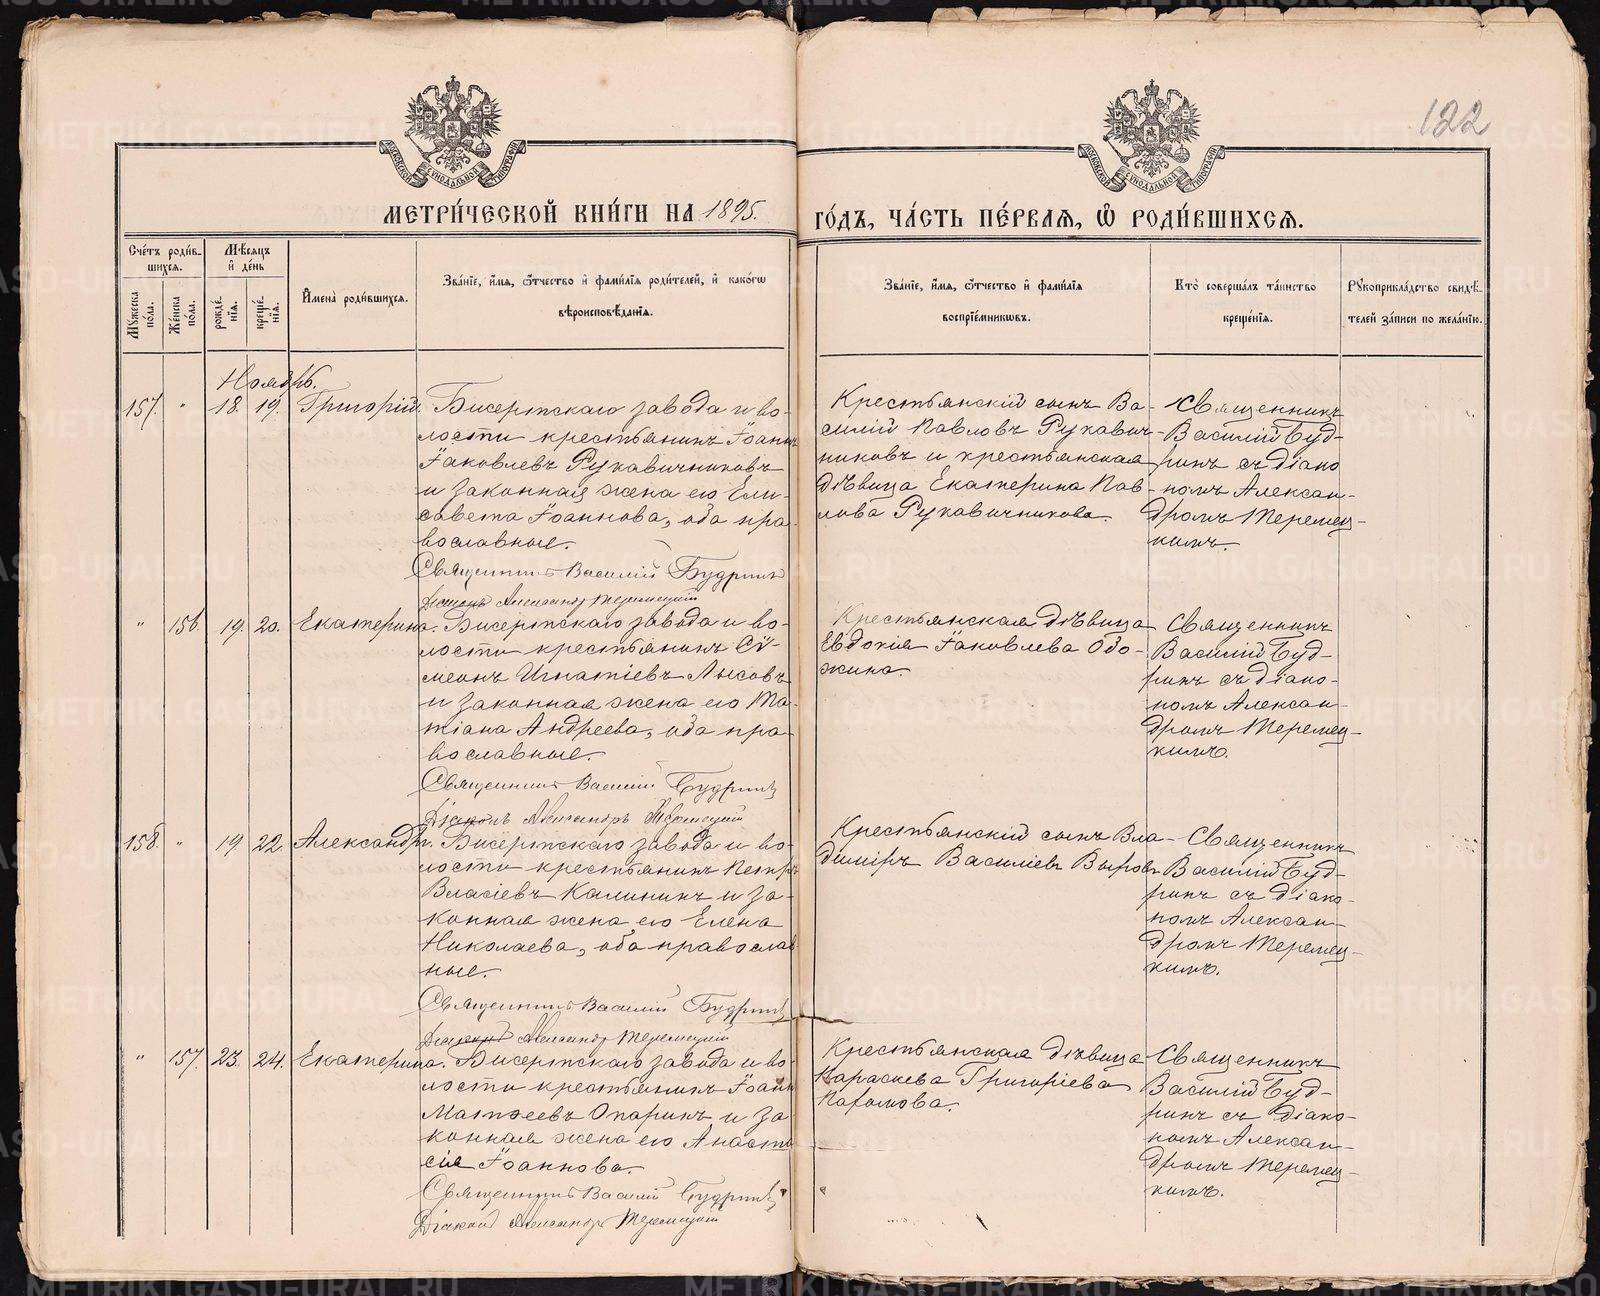 122
МЕТРИ́ЧЕСКОЙ КНИ́ГИ НА 1895.
ГО́ДЪ, ЧА́СТЬ ПЕ́РВАѦ, Ѡ҆ РОДИ́ВШИХСѦ.
Сче́тъ роди́в-
шихся.
Мѣ́сяцъ
и҆ де́нь
Мꙋ́жеска по́ла.
Же́нска по́ла.
рожде́нїѧ.
креще́нїѧ.
И҆мена̀ роди́вшихся.
Зва́нїе, и҆́мѧ, ѻ҆́тчество и҆ фами́лїѧ роди́телей, и҆ како́гѡ
вѣроисповѣ́данїѧ.
Зва́нїе, и҆́мѧ, ѻ҆́тчество и҆ фами́лїѧ
воспрїе́мникωвъ.
Кто̀ соверша́лъ та́инство
креще́нїѧ.
Рꙋкоприкла́дство свидѣ́-
телей за́писи по жела́нїю.
Ноябрь.
157. " 18. 19. Григорій.
Бисертскаго завода и во-
лости крестьянинъ Іоаннъ
Іаковлевъ Рукавичниковъ
и законная жена его Ели-
савета Іоаннова, оба пра-
вославные.
Священникъ Василій Будринъ
Діаконъ Александръ Теремецкій
Крестьянскій сынъ Ва-
силій Павловъ Рукавич-
никовъ и крестьянская
дѣвица Екатерина Пав-
лова Рукавичникова.
Священникъ
Василій Буд-
ринъ съ діако
номъ Алексан-
дромъ Теремец-
кимъ.
" 156. 19. 20. Екатерина.
Бисертскаго завода и во-
лости крестьянинъ Сѵ-
меонъ Игнатіевъ Лысовъ
и законная жена его Та-
тіана Андреева, оба пра-
вославные.
Священникъ Василій Будринъ
Діаконъ Александръ Теремецкій
Крестьянская дѣвица
Евдокія Іаковлева Обо-
жина.
Священникъ
Василій Буд-
ринъ съ діако-
номъ Алексан-
дромъ Теремец-
кимъ.
158. " 19 22. Александръ.
Бисертскаго завода и во-
лости крестьянинъ Петръ
Власіевъ Калининъ и за-
конная жена его Елена
Николаева, оба православ
ные.
Священникъ Василій Будринъ
Діаконъ Александръ Теремецкій
Крестьянскій сынъ Вла-
диміръ Василіевъ Выровъ
Священникъ
Василій Буд-
ринъ съ діако-
номъ Алексан-
дромъ Теремец-
кимъ.
" 157. 23. 24. Екатерина.
Бисертскаго завода и во-
лости крестьянинъ Іоаннъ
Матѳеевъ Опаринъ и за
конная жена его Анаста
сія Іоаннова.
Священникъ Василій Будринъ
Діаконъ Александръ Теремецкій
Крестьянская дѣвица
Параскева Григоріева
Пахомова.
Священникъ
Василій Буд-
ринъ съ діако-
номъ Алексан-
дромъ Теремец-
кимъ.
METRIKI.GASO-URAL.RU